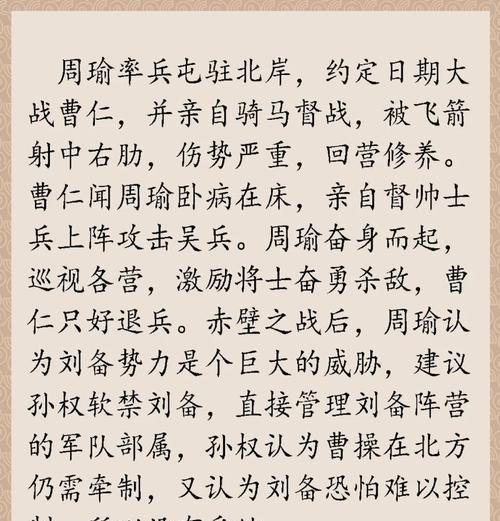 周瑜率兵屯驻北岸，约定日期大
战曹仁，并亲自骑马督战，被飞箭
射中右肋，伤势严重，回营修养。
曹仁闻周瑜卧病在床，亲自督帅士
兵上阵攻击吴兵。周瑜奋身而起，
巡视各营，激励将士奋勇杀敌，曹
仁只好退兵。赤壁之战后，周瑜认
为刘备势力是个巨大的威胁，建议
孙权软禁刘备，直接管理刘备阵营
的军队部属，孙权认为曹操在北方
仍需牵制，又认为刘备恐怕难以控